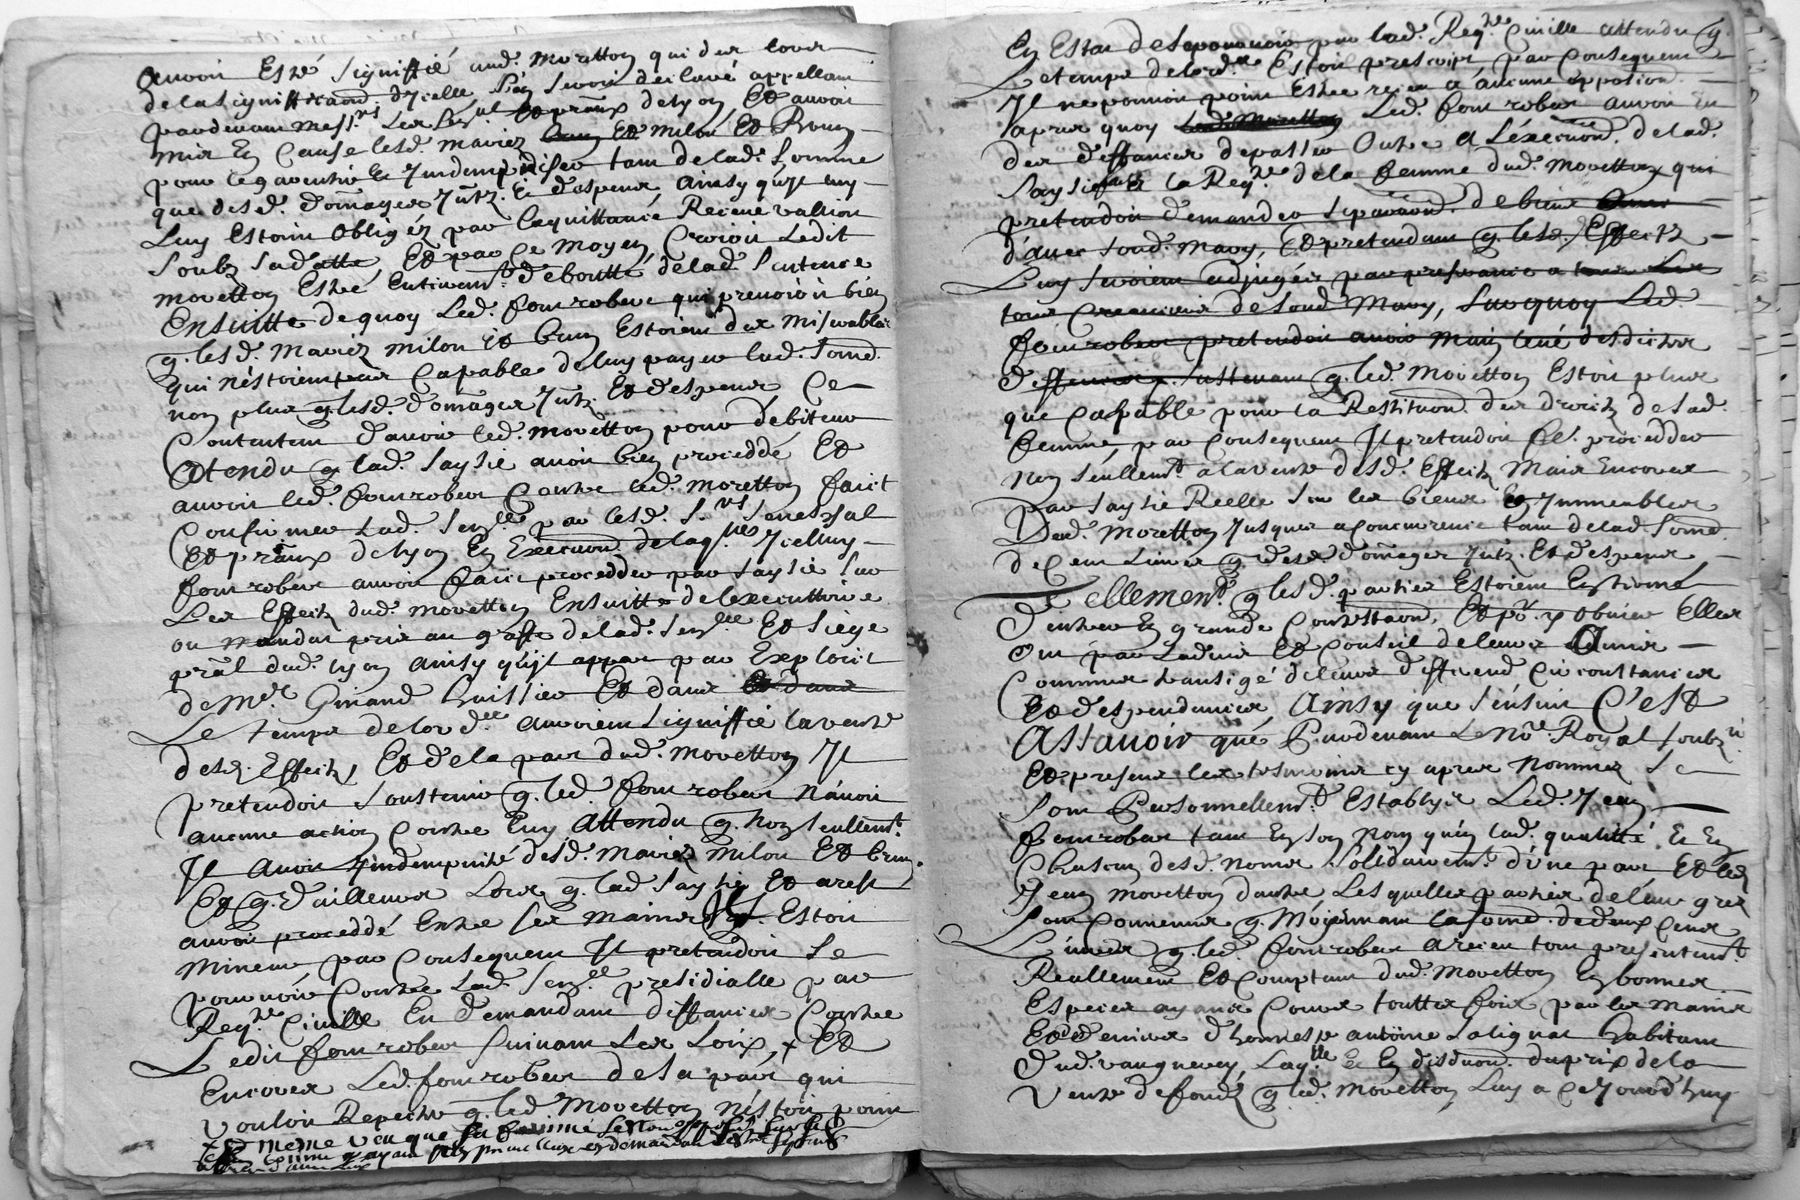 auoir Esté signiffié aud. Moretton qui des lors
de la signiffica͠on d'Icelle s'en seroit déclaré appellant
pardeuant mess.rs Les Ses.al Et præaux de lyon Et auoir
mis En Cause lesd. mariez Et milon Et Brun
pour le garentir Et Indempniser tant de lad. somme
que desd. domages Jntz. Et despens, Ainsy qu'Jl luy
Luy Estoint obligés par la quittance
soubz sad. Et par Ce moyen Croioit Ledit
moretton Estre Entierem.t déboutté de lad. Sentence
Ensuitte de quoy Led. fontrobert qui preuoioit bien
q. lesd. mariez milon Et brun Estoient des miserables
qui n'éstoient pas Capable de luy payer lad. Som͠e
non plus q. lesd. domages Jntz. Et despens Ce
Contentent d'auoir led. moretton pour debiteur
Attendu q. lad. saysie auoit bien proceddé Et
auoit led. fontrobert Contre led. moretton faict
Confirmer lad. Sen.ce par lesd. S.rs Seneschal
Et præaux de lyon En Execu͠on de laq.lle Jcelluy
fontrobert auroit faict procedder par saysie sur
Les Effectz dud. moretton Ensuitte de l'executtoire
ou mandat pris au greffe de lad. Sen.ée Et siége
præal dud. lyon ainsy qu'Jl appert par Exploict
de M.e Girard huissier Et dans
Le temps de l'ord.ce auroient signiffié la vente
desd. Effectz, Et de la part dud. Moretton Jl
pretendoit soustenir q. led. fontrobert n'auoit
aucune action Contre luy Attendu q. non seullem.t
Jl auoit Jndempnité desd. mariez milon Et brun
Et q. d'ailleurs Lors q. lad. saysie Et arest
auoit proceddé Entre ses mains Jl Estoit
Mineur par Consequent Jl pretendoit se
pouruoir Contre lad. Sen.ce presidialle par
Req.te Ciuille En demandant deffences Contre
Ledit fontrobert suiuant Les Loix, + Et
Encores Led. fontrobert de sa part qui
vouloit Repectre q. led. Moretton n'éstoit point
+ Et même veu que sa femme
En Estat de se pouruoir par lad. Req.te Ciuille attendu q.
Le temps de l'ord.ce Estoit prescript par Consequent
Jl ne pouuoit point Estre receu a aucune oppotion
apres quoy Led. fontrobert auroit Eu
des deffences de passer Outre a L'execu͠on de lad.
saysie la Req.te de la femme dud. Moretton qui
pretendoit demander separa͠on de biens
d'auec sond. Mary, Et pretendant q. lesd. Effectz
Luy seroient adjugés par preferance a tous Les
tous Creanciers de sond. Mary, Surquoy Led.
fontrobert pretendoit auoir main leué desdictes
deffences soustenant q. led. Moretton Estoit plus
que Capable pour la Restitu͠on des droictz de sad.
femme, par Consequent Jl pretendoit fe. procedder
non seullem.t a la vente desd. Effectz Mais Encores
Par saysie Reelle sur les biens Et Jmmeubles
Dud. Moretton Jusques a Concurrence tant de lad. som͠e
de Cent Liures q. desd. domages Jntz. Et despens
Tellemen.t q. lesd. parties Estoient En termes
d'entrer En grande Contesta͠on, Et po.r y obuier Elles
Ont par Laduis Et Conseil de leurs Amis
Communs transigé de leurs differend Circonstances
Et despendances Ainsy que s'ensuit C'est
Assauoir que Pardeuant Le No.re Royal soubz.né
Et present les tesmoins cy apres Nommez se
sont Personnellem.t Establys Led. Jean
fontrobert tant En son Nom qu'en lad. qualitté Et En
Chascun desd. Noms solidairem.t d'une part Et led.
Jean Moretton d'autre Lesquelles parties de leur grez
sont Conuenus q. Moyennant la som͠e de deux Cens
Liures q. led. fontrobert a receu tout presentem.t
Reallement Et Comptant dud. Moretton En bonnes
Especes ayant Cours touttes fois par les mains
Et deniers d'honneste antoine Salignat habitant
dud. vaugneray, Laq.lle Et En disdu͠on du prix de la
vente de fondz q. led. Moretton Luy a Ce Jourd'huy